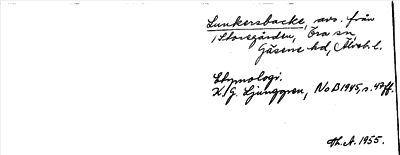 Lunkersbacke, avs. från
Storegården, Öra sn,
Gäsene hd, Älvsb. l.
Etymologi.
K. G. Ljunggren, NoB 1945, s. 47 ff.
Th. A. 1955.